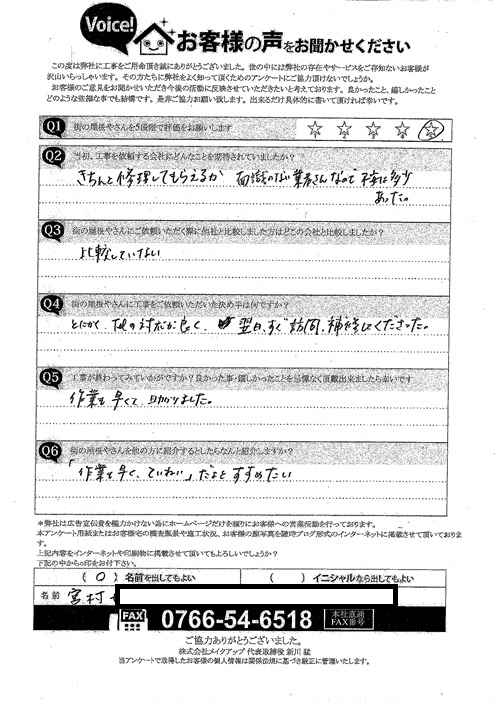 Voice!
お客様の声をお聞かせください
この度は弊社に工事をご用命頂き誠にありがとうございます。世の中には弊社の存在やサービスをご存知ないお客様が
沢山いらっしゃいます。その方たちに弊社をよく知って頂くためのアンケートにご協力頂けないでしょうか。
お客様のご意見をお聞かせいただき今後の活動に反映させていただきたいと考えております。良かったこと、嬉しかったこと
どのような些細な事でも結構です。是非ご協力お願い致します。出来るだけ具体的に書いて頂ければ幸いです。
Q1 街の屋根やさんを5段階で評価をお願いします
1 2 3 4 5
Q2 当初、工事を依頼する会社にどんなことを期待されていましたか?
きちんと修理してもらえるか 面識のない業者さんなので不安は多少
あった。
Q3 街の屋根やさんにご依頼いただく際に他社と比較しました方はどこの会社と比較しましたか?
比較していない
Q4 街の屋根やさんに工事をご依頼いただいた決め手は何ですか?
とにかく、TELの対応が良く、翌日、すぐ訪問、補修にくださった。
Q5 工事が終わってみていかがですか?良かった事・嬉しかったことを忌憚なく頂戴出来ましたら幸いです
作業も早くて助かりました。
Q6 街の屋根やさんを他の方に紹介するとしたらなんと紹介しますか?
「作業も早く、ていねい」だよとすすめたい
*弊社は広告宣伝費を極力かけない為にホームページだけを頼りにお客様への営業活動を行っております。
本アンケート用紙またはお客様宅の調査風景や施工状況、お客様の顔写真を随時ブログ形式のインターネットに掲載させて頂いております。
上記内容をインターネットや印刷物に掲載させて頂いてもよろしいでしょうか?
下記の中から○印をお付下さい。
(○)名前を出してもよい ( )イニシャルなら出してもよい
名前 宮村
FAX 0766-54-6518 本社直通FAX番号
ご協力ありがとうございました。
株式会社メイクアップ 代表取締役 新川 猛
当アンケートで取得したお客様の個人情報は関係法規に基づき厳正に管理いたします。